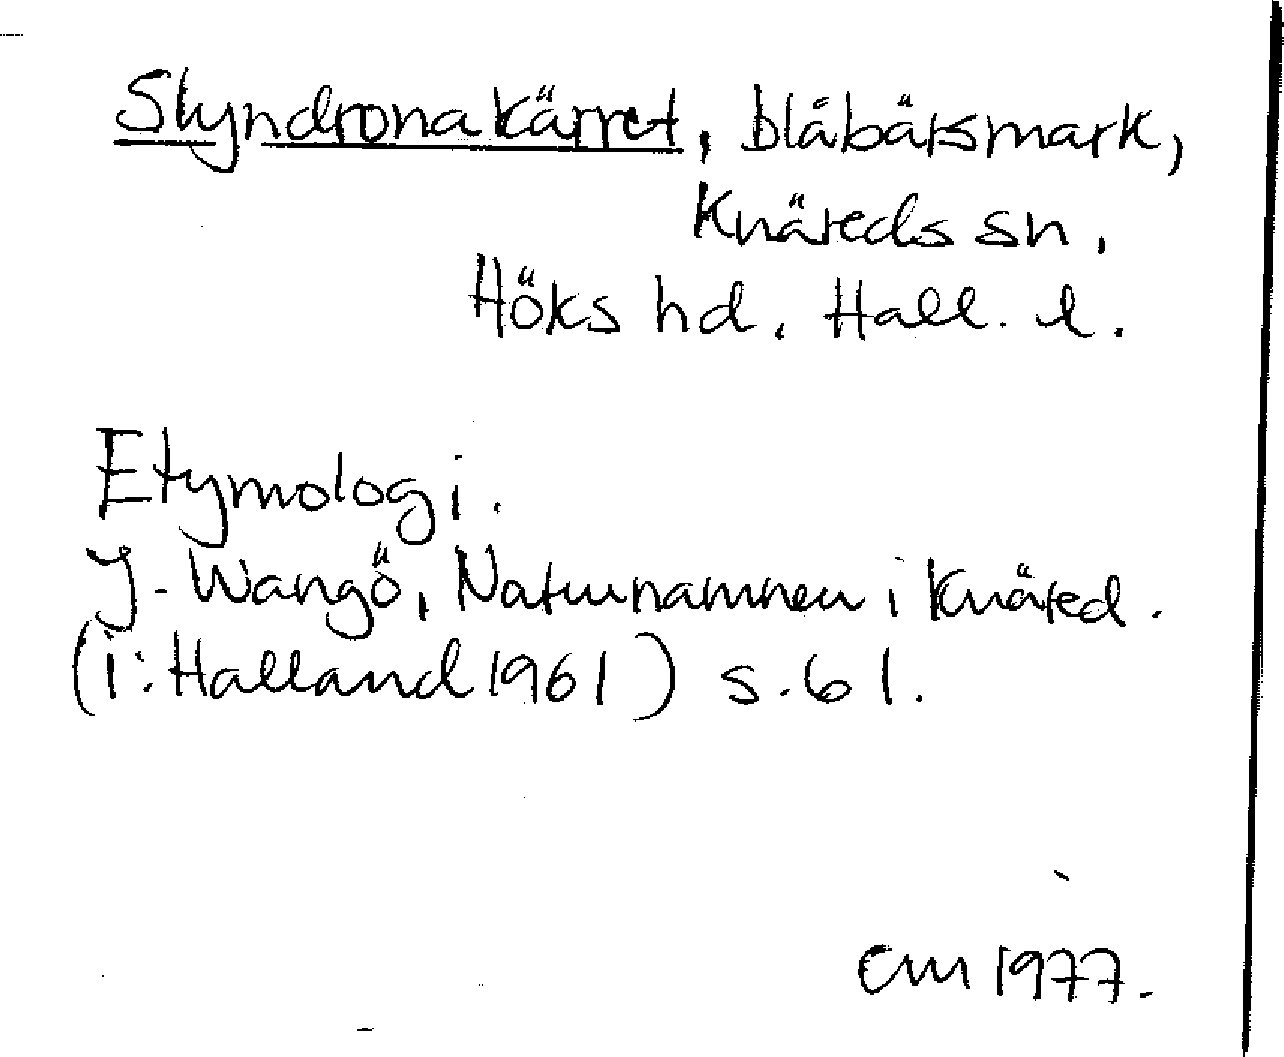 Slyndronakärret, blåbärsmark,
Knäreds sn.
Höks hd. Hall. l.
Etymologi.
J. Wangö, Naturnamnen i Knäred.
(i: Halland 1961) s. 61.
CM 1977.